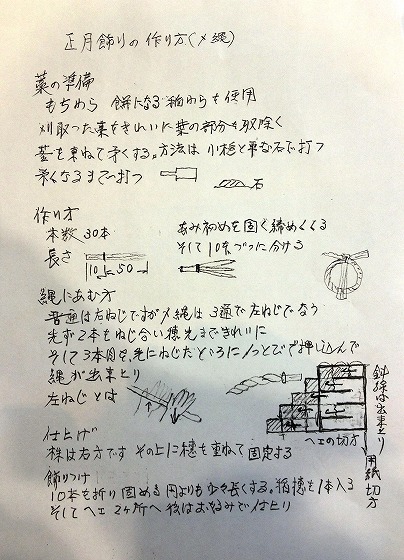 正月飾りの作り方(〆縄)
藁の準備
もちわら 餅になる稲わらを使用
刈取った藁をきれいに葉の部分を取除く
茎を束ねて柔くする。方法は 小槌と平な石で打つ
柔くなるまで打つ
石
作り方
本数 30本
長さ
10 50
あみ初めを固く締めくくる
そして10本づつに分ける
縄にあむ方
普通は右ねじですが〆縄は3通で左ねじでなう
先ず2本をねじ合い穂先まできれいに
そして3本目を、手にねじたところに1つとびで押し込んで
縄が出来上り
左ねじとは
ヘエの切方
用紙切方
仕上げ
株は右方です その上に穂を重ねて固定する
飾りつけ
10本を折り固める 円よりも少々長くする。稲穂を1本入る
そしてヘエ2ケ所へ 後はお好みで仕上り